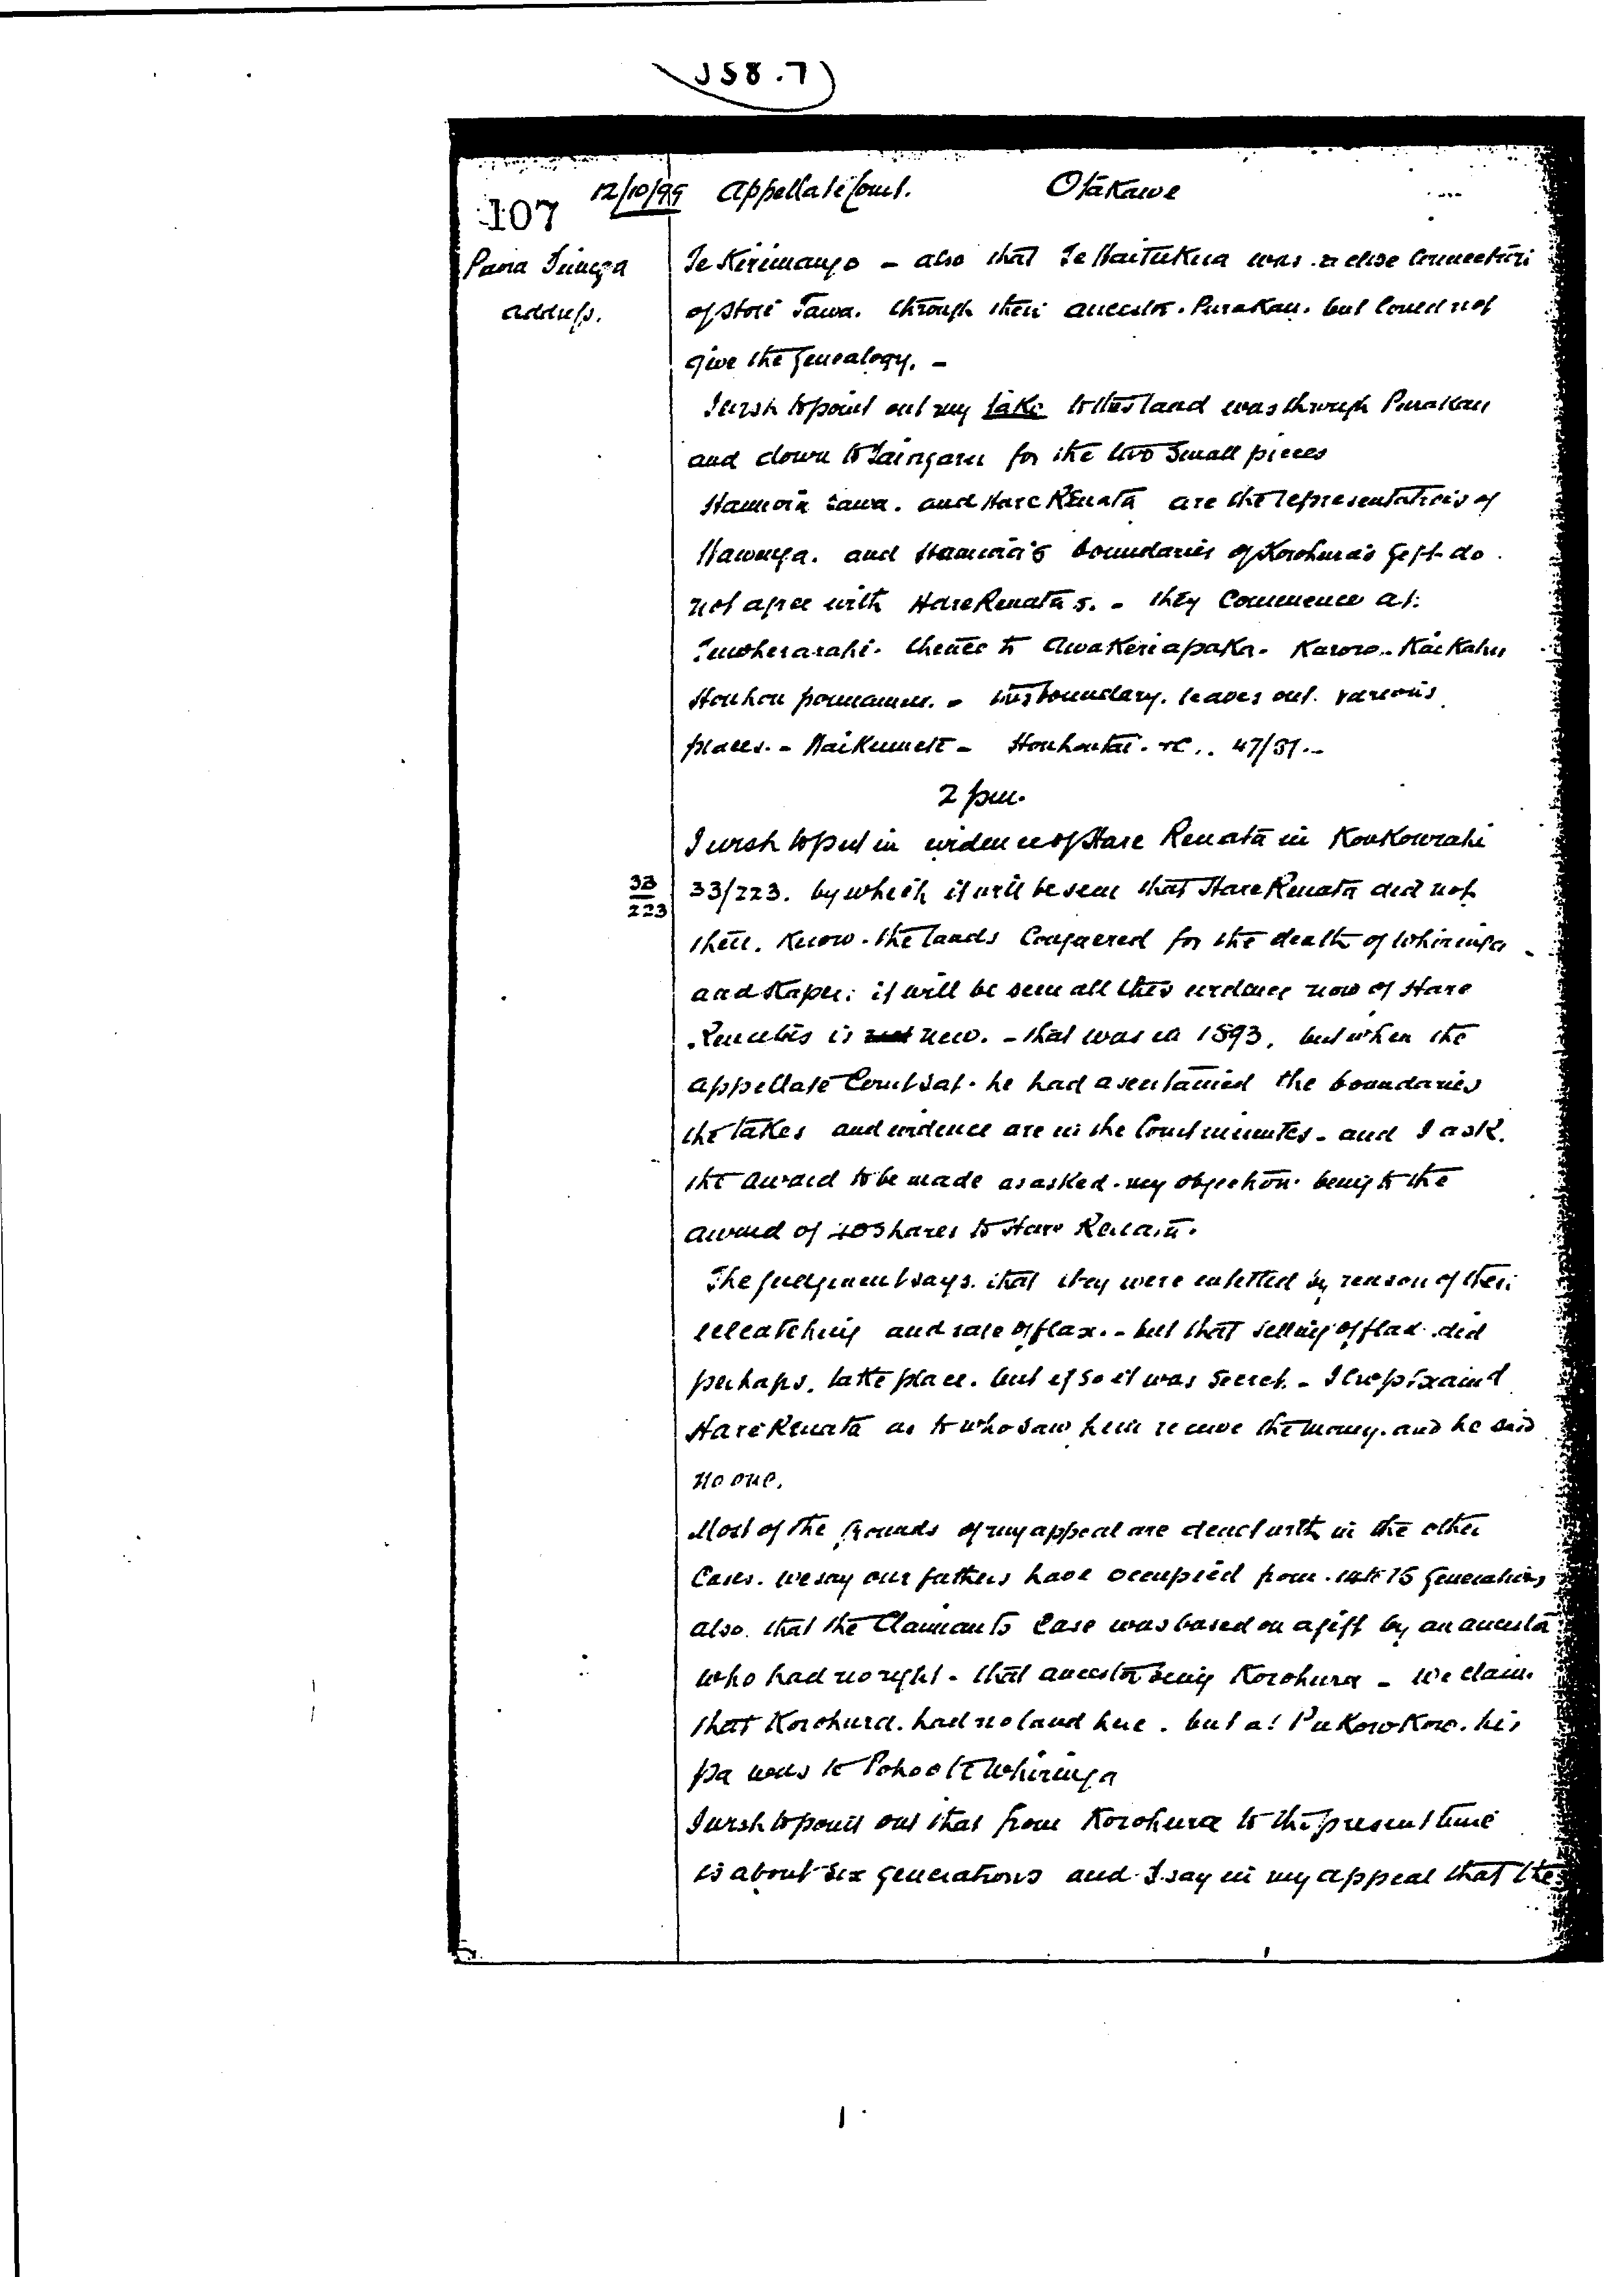 J58.7
107 12/10/99 Appellate Court. Otakawe
Address.
Te Kirimango - also that Te Waitukua was a close connection
of Hori Tawa. through their ancestor. Purakau. but could not
give the Genealogy. -
I wish to point out my take to this land was through Purakau
and down to Taingaru for the two small pieces
Hamiora Tawa. and Hare Renata are the representatives of
Hawunga. and Hamiora's boundaries of Korohura's gift do
not agree with Hare Renata's. - they commence at.
thence to Awakeriapaka. Karoro. Kaikahu
Houhou pounamu. - this boundary. leaves out. various
places. - Waikumete - Houhoutai. &c.. 47/51. -
2 pm.
I wish to put in evidence of Hare Renata in Koukourahi
33/223 33/223. by which it will be seen that Hare Renata did not
then. know. the lands conquered for the death of Whiringa
and Kapu; it will be seen all this evidence now of Hare
Renata's is not new. - that was in 1893, but when the
appellate Court sat. he had ascertained the boundaries
the takes and evidence are in the Court minutes. and I ask.
the award to be made as asked. my objection. being to the
award of 40 shares to Hare Renata.
The judgment says. that they were entitled by reason of their
eelcatching and sale of flax. - but that selling of flax. did
perhaps. take place. but if so it was secret. - I cross examd
Hare Renata as to who saw him receive the money. and he said
no one.
Most of the Grounds of my appeal are dealt with in the other
Cases. we say our fathers have occupied from. 14 to 15 generations
also. that the Claimants case was based on a gift by an ancestor
who had no right. that ancestor being Korohura - we claim.
that Korohura. had no land here. but at Pukorokoro. his
pa was te Pohoo te Whiringa
I wish to point out that from Korohura to the present time
is about six generations and I say in my appeal that the